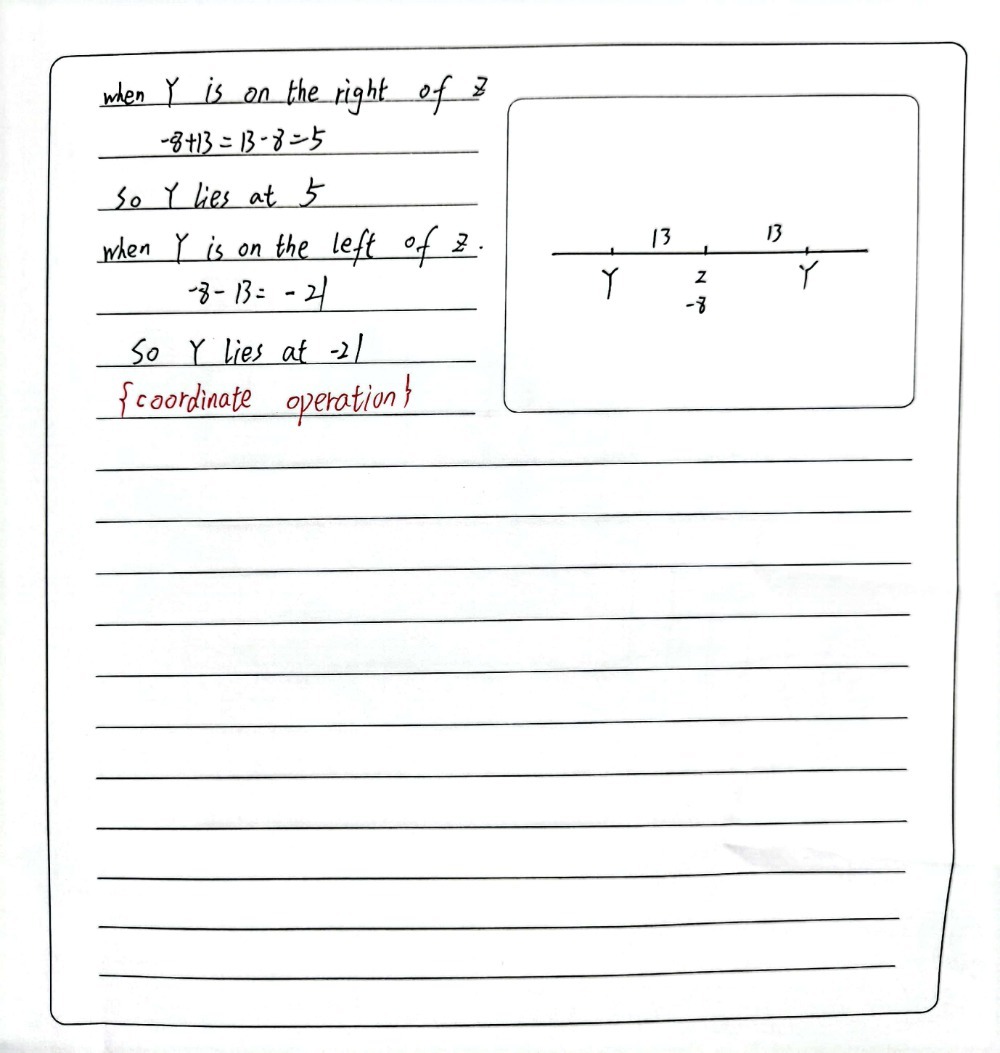 when Y is on the right of Z
-8+13=13-8=5
So Y lies at 5
when Y is on the left of Z.
-8-13=-21
So Y lies at -21
{coordinate operation}
13 13
Y Z Y
-8